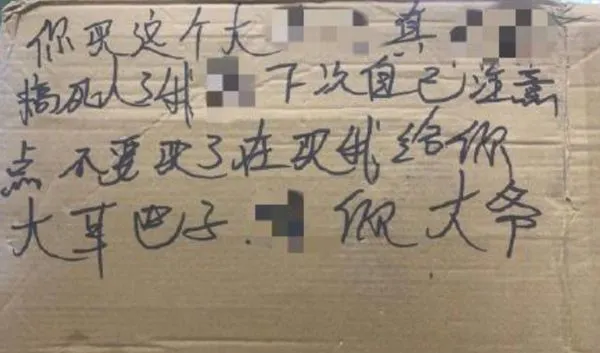 你买这个大 真
搞死人了我 下次自己注意
点 不要买了在买我给你
大耳巴子. 你大爷